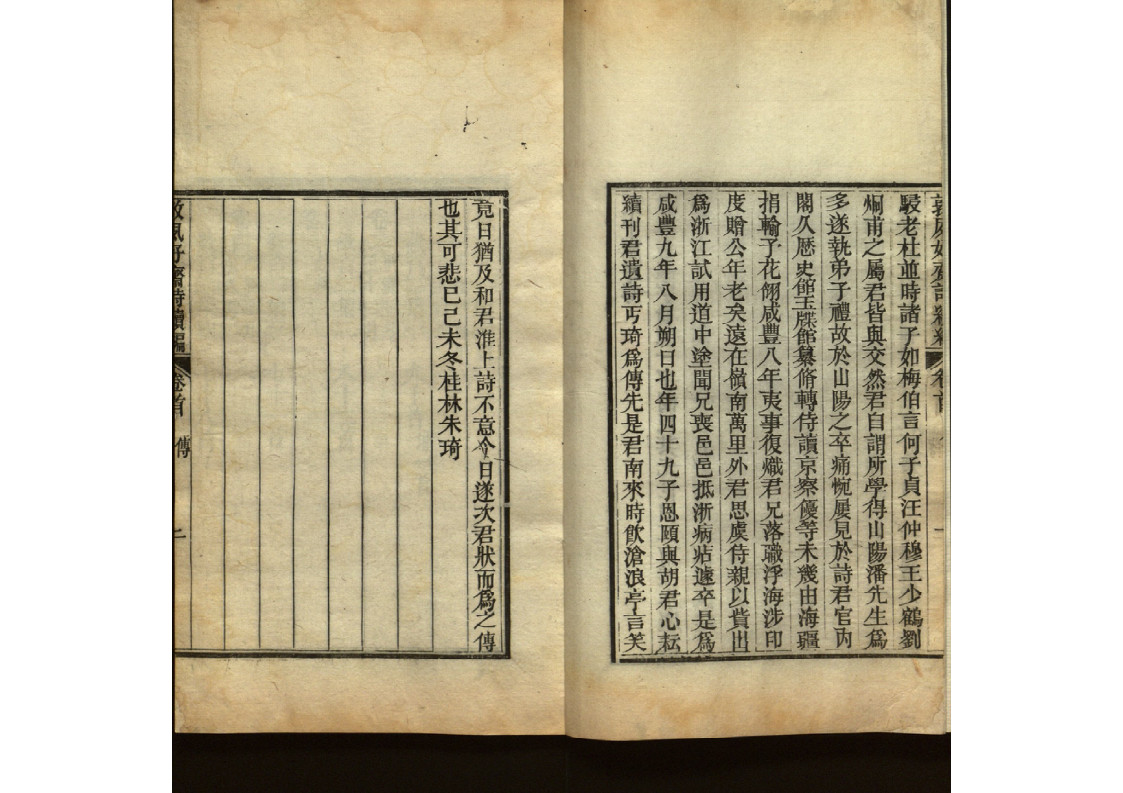 駸老杜並時諸子如梅伯言何子貞汪仲穆王少鶴劉
炯甫之屬君皆與交然君自謂所學得山陽潘先生爲
多遂執弟子禮故於山陽之卒痛惋屢見於詩君官內
閣久歷史館玉牒館纂脩轉侍讀京察優等未幾由海疆
捐輸予花翎咸豐八年夷事復熾君兄落職浮海涉印
度贈公年老矣遠在嶺南萬里外君思虔侍親以貲出
爲浙江試用道中塗聞兄喪邑邑抵浙病痁遽卒是爲
咸豐九年八月朔日也年四十九子恩頤與胡君心耘
續刊君遺詩丐琦爲傳先是君南來時飲滄浪亭言笑
竟日猶及和君淮上詩不意今日遂次君狀而爲之傳
也其可悲已己未冬桂林朱琦
風好齋詩續編 卷首 傳 二